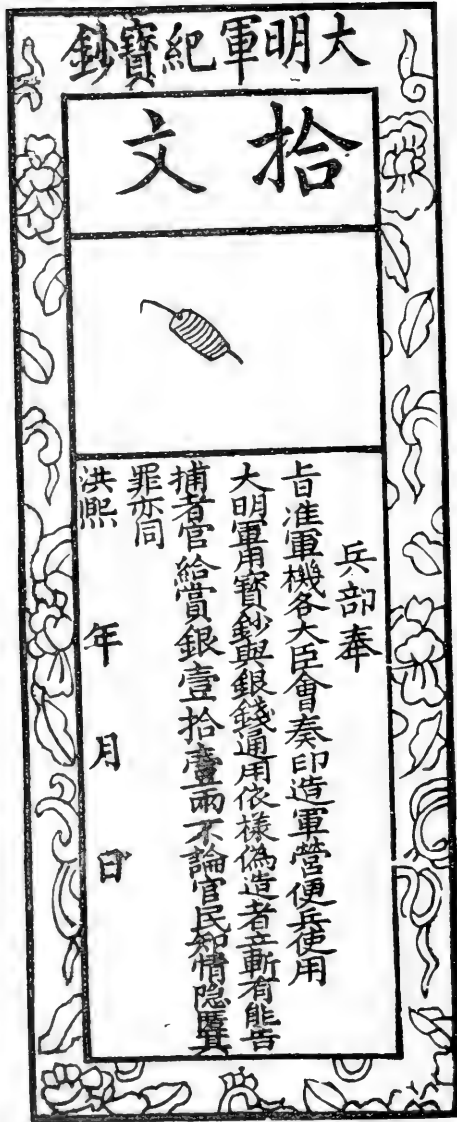 大明軍紀寶鈔
拾文
兵部奉
旨准軍機各大臣會奏印造軍營便兵使用
大明軍用寶鈔與銀錢通用依樣偽造者立斬有能告
捕者官給賞銀壹拾壹兩不論官民知情隱匿其
罪亦同
洪熙 年 月 日